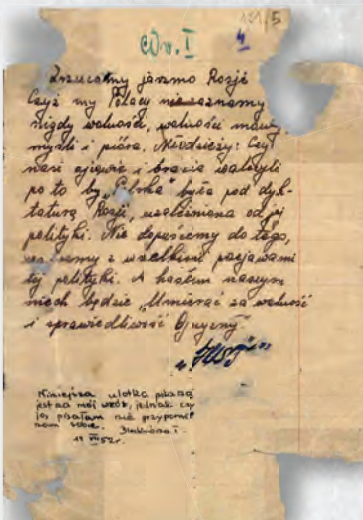 131/5
Wn. I
4
Zrzucamy jarzmo Rosji
Czyż my Polacy nie zaznamy
nigdy wolności, wolności mowy,
myśli i pióra. Młodzieży! Czyż
nasi ojcowie i bracia walczyli
po to by „Polska" była pod dyk-
taturą Rosji, uzależniona od jej
polityki. Nie dopuścimy do tego,
z wszelkimi przejawami
tej polityki. A hasłem naszym
niech będzie „Umierać za wolność
i sprawiedliwość Ojczyzny"
Niniejsza ulotka pisana
jest na mój wzór, jednak czy
ją pisałam nie przypomi
nam sobie.
11 VII 52 r.